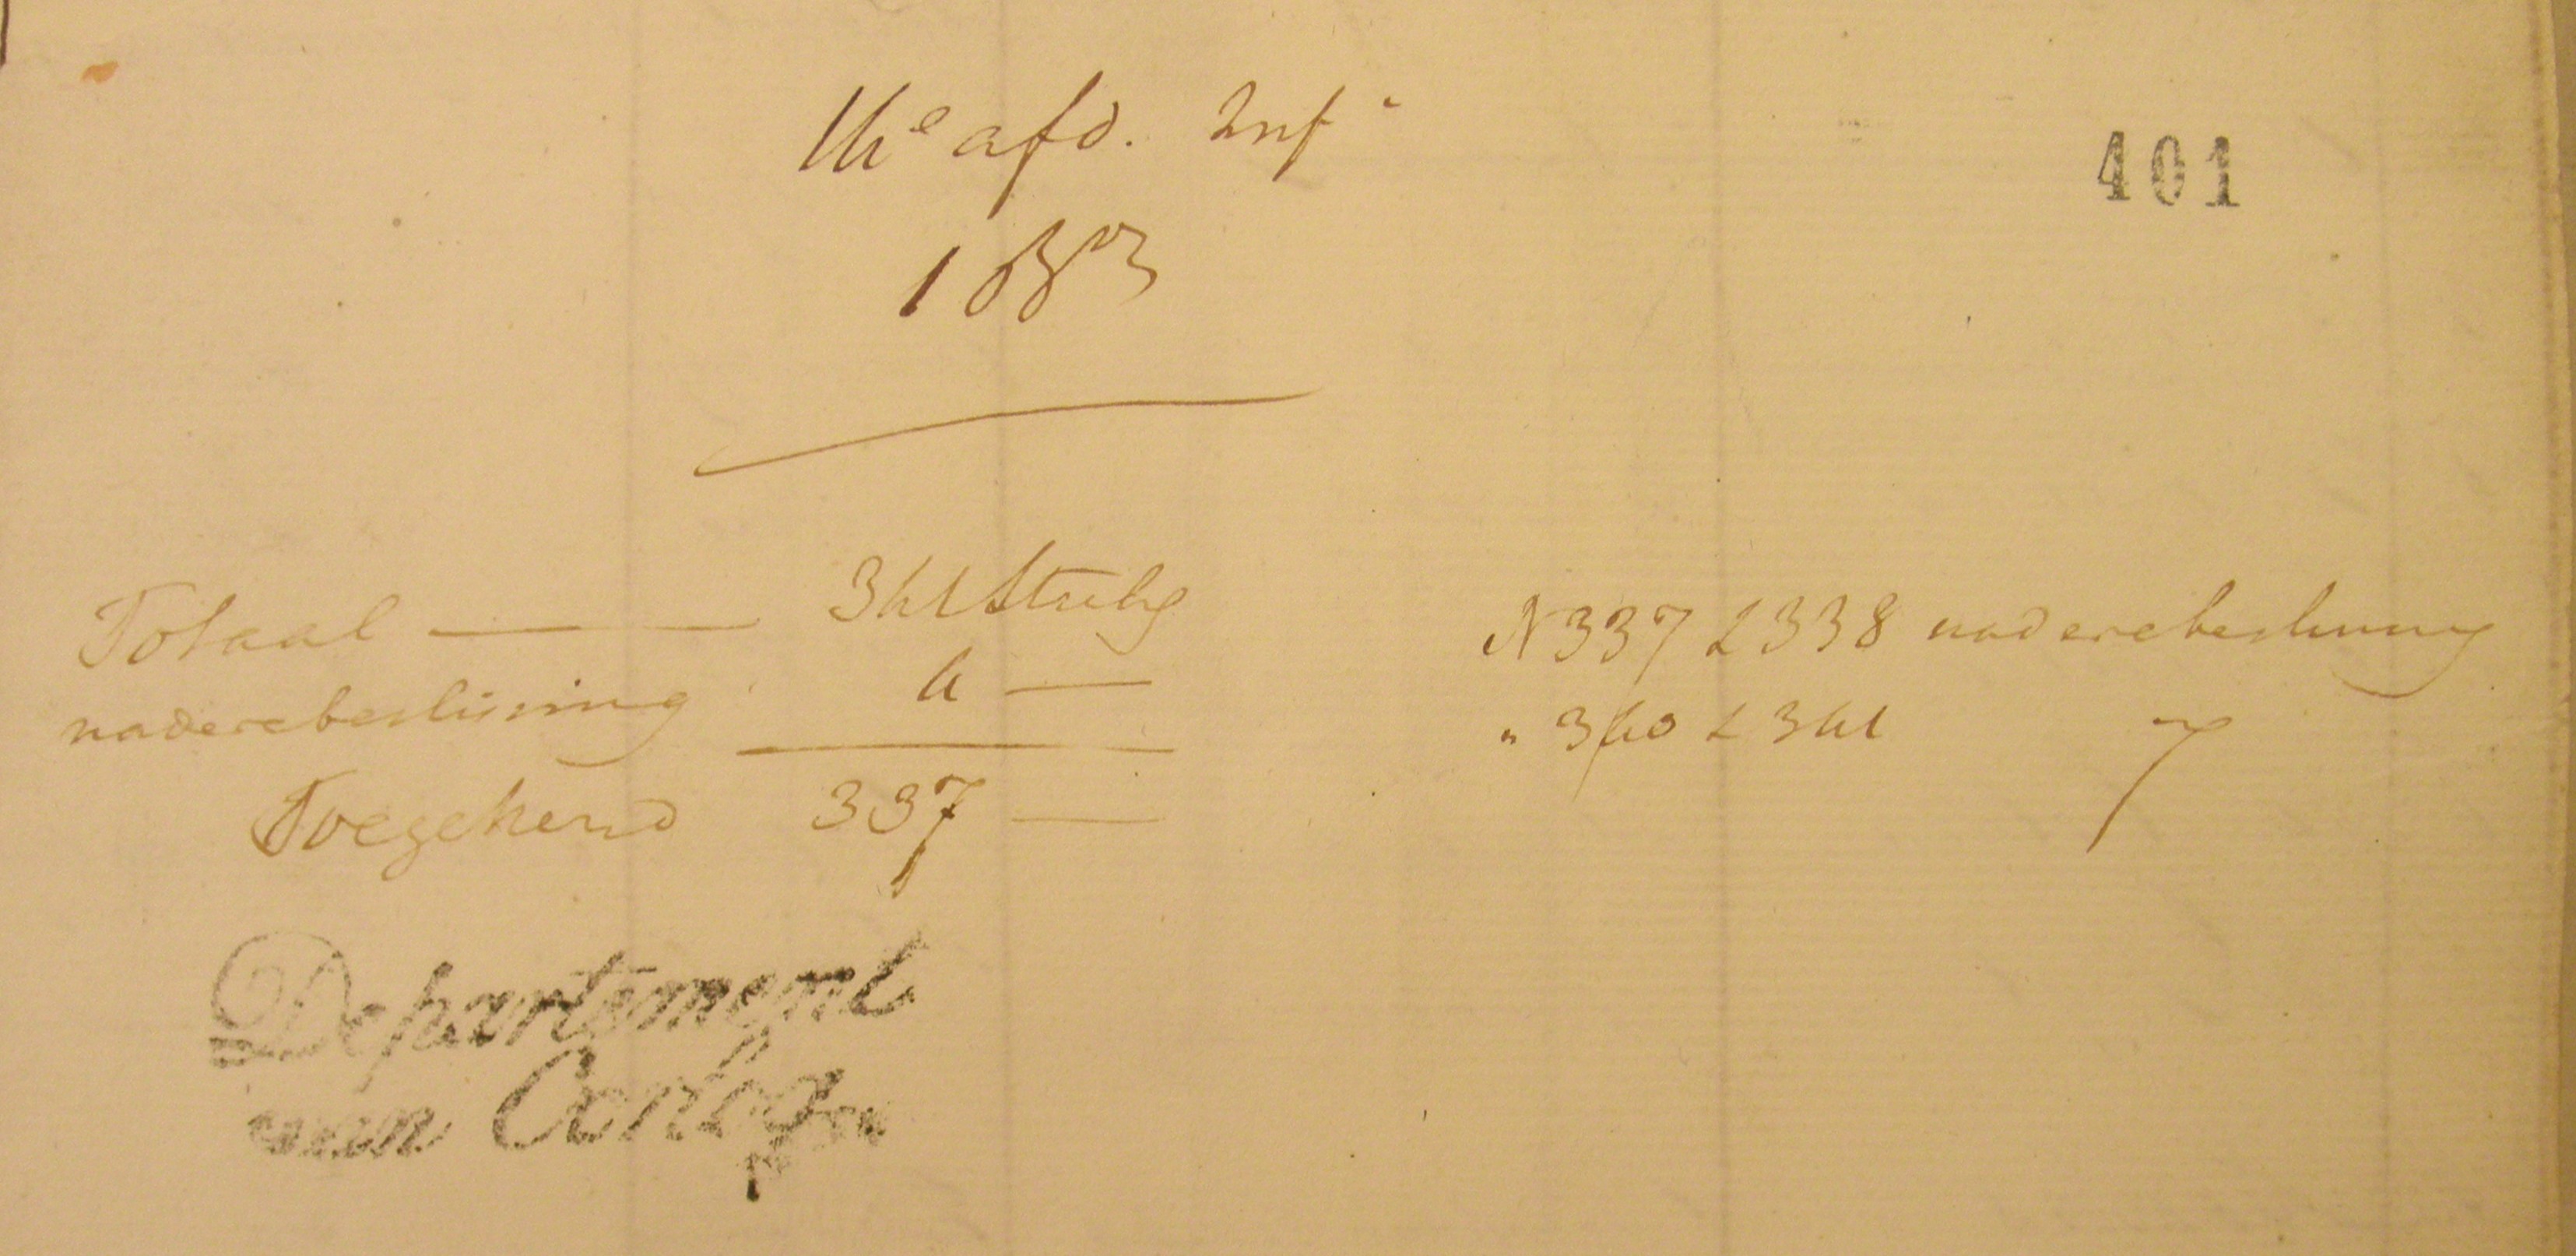 14e afd. Infe
1833
401
Totaal — 341 Stuks
nadere beslissing 4 —
Toegekend 337 —
N 337 & 338 nadere beslissing
" 340 & 341
Departement
van Oorlog